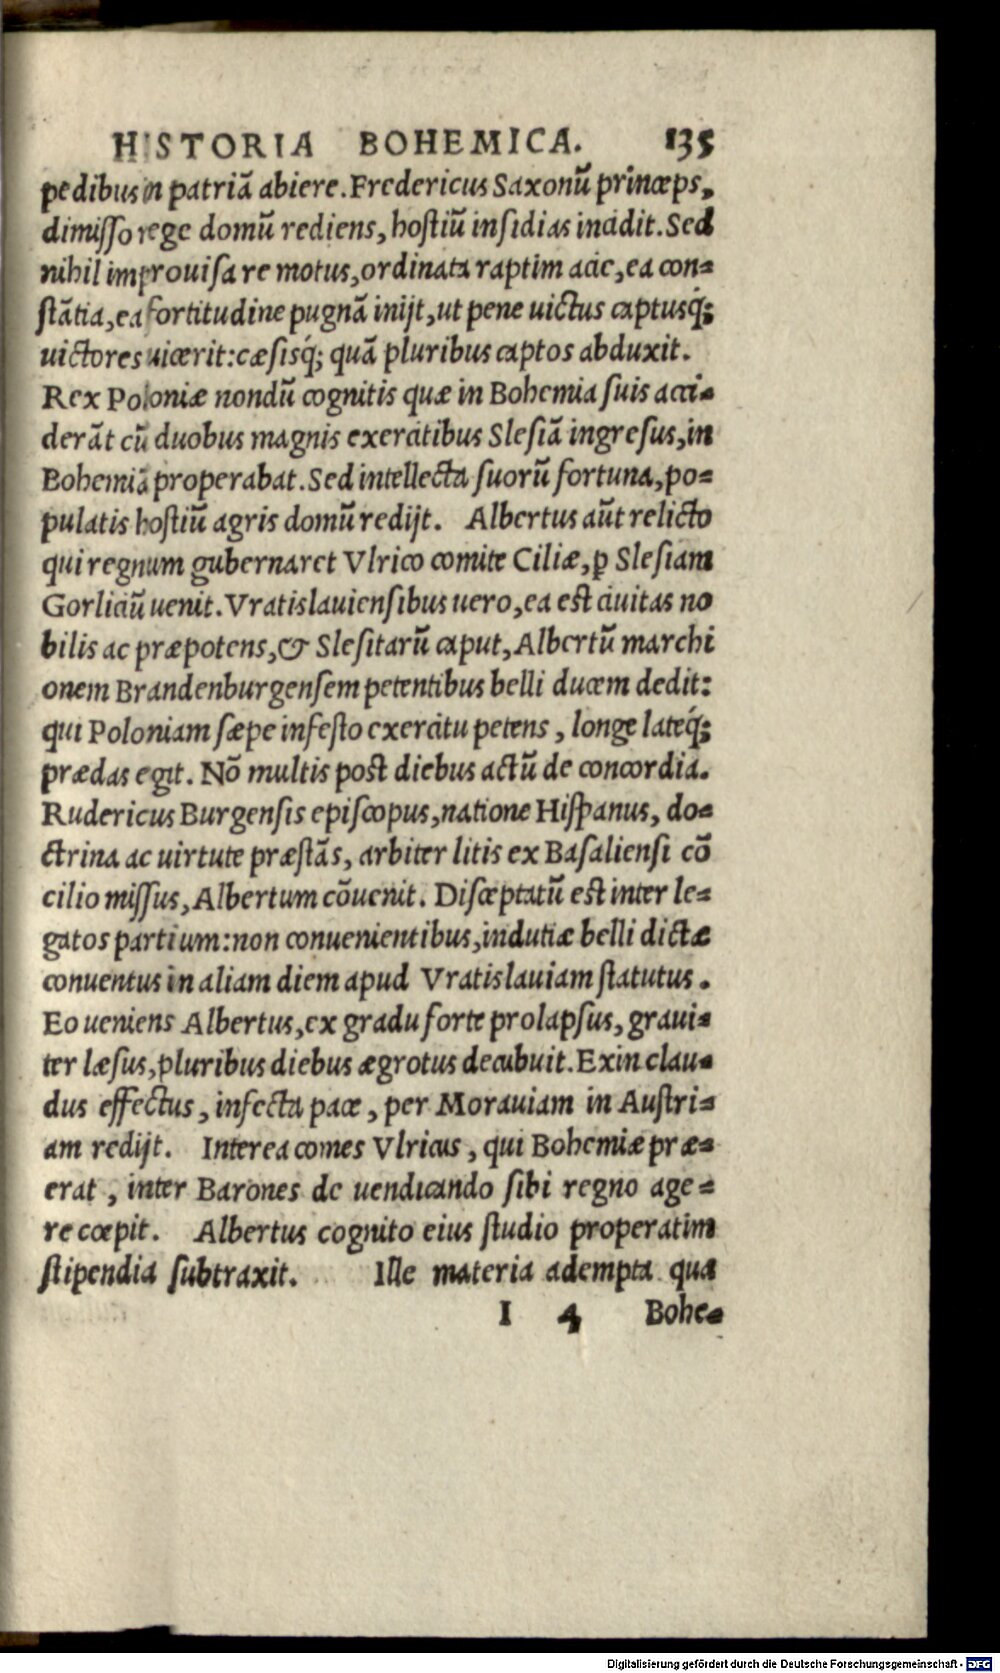 HISTORIA BOHEMICA. 135
pedibus in patriā abiere. Fredericus Saxonū princeps,
dimisso rege domū rediens, hostiū insidias incidit. Sed
nihil improuisa re motus, ordinata raptim acie, ea con=
stātia, ea fortitudine pugnā inijt, ut pene uictus captusq́;
uictores uicerit: cæsisq́; quā pluribus captos abduxit.
Rex Poloniæ nondū cognitis quæ in Bohemia suis acci=
derāt cū duobus magnis exercitibus Slesiā ingresus, in
Bohemiā properabat. Sed intellecta suorū fortuna, po=
pulatis hostiū agris domū redijt. Albertus aūt relicto
qui regnum gubernaret Vlrico comite Ciliæ, ꝑ Slesiam
Gorliciū uenit. Vratislauiensibus uero, ea est ciuitas no
bilis ac præpotens, & Slesitarū caput, Albertū marchi
onem Brandenburgensem petentibus belli ducem dedit:
qui Poloniam sæpe infesto exercitu petens, longe lateq́;
prædas egit. Nō multis post diebus actū de concordia.
Rudericus Burgensis episcopus, natione Hispanus, do=
ctrina ac uirtute præstās, arbiter litis ex Basaliensi cō
cilio missus, Albertum cōuenit. Disceptatū est inter le=
gatos partium: non conuenientibus, indutiæ belli dictæ
conuentus in aliam diem apud Vratislauiam statutus.
Eo ueniens Albertus, ex gradu forte prolapsus, graui=
ter læsus, pluribus diebus ægrotus decubuit. Exin clau=
dus effectus, infecta pace, per Morauiam in Austri=
am redijt. Interea comes Vlricus, qui Bohemiæ præ=
erat, inter Barones de uendicando sibi regno age=
re cœpit. Albertus cognito eius studio properatim
stipendia subtraxit. Ille materia adempta qua
I 4 Bohe=
Digitalisierung gefördert durch die Deutsche Forschungsgemeinschaft - DFG